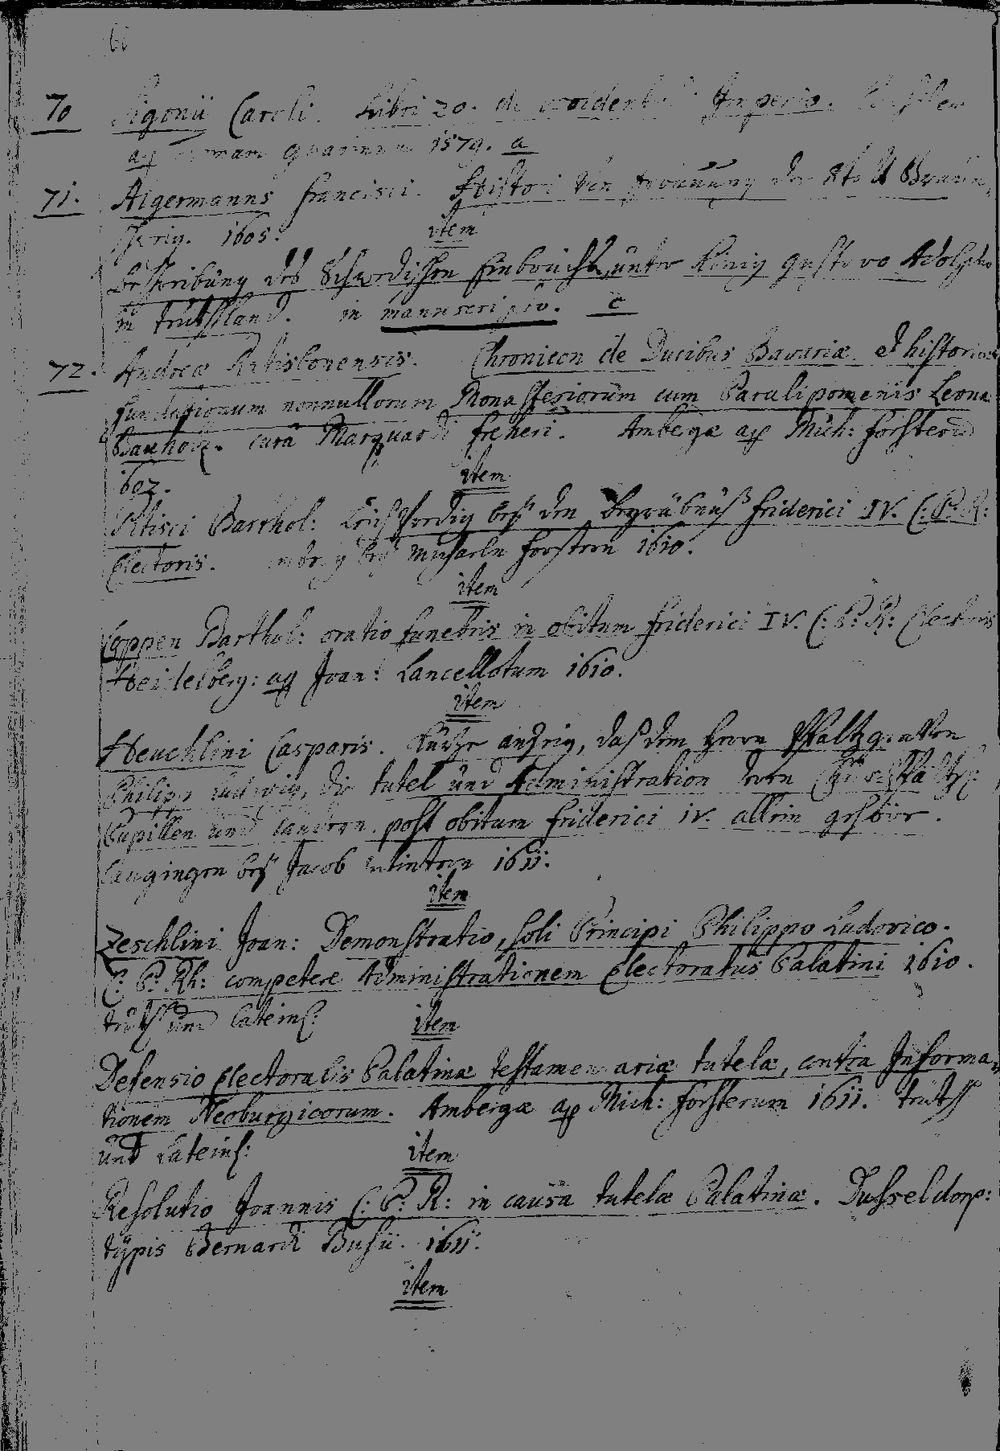 70 Sigonii Caroli. Libri 20. de occidentali Imperio.
ap 1579. a
71. Algermanns Francisci. Histori von der
1605. item
beschreibung des Schwedischen Einbruchs, unter König Gustavo Adolpho
in Teutschland. in manuscripto. C
72. Andreæ Ratisbonensis. Chronicon de Ducibus Bavariæ et historia
fundationum nonnullorum Monasteriorum cum Paralipomeniis Leonar
Bauholz. curâ Marquardi Freheri. Ambergæ ap Mich: Forsterū
1602. item
Pitisci Barthol: Leichpredig bey den Begräbnüß Friderici IV. C: P: R:
Electoris. bey Michaeln Forstern 1610.
item
Coppen Barthol: oratio funebris in obitum Friderici IV. C: P: R: Electoris
Heidelberg: ap Joan: Lancellotum 1610.
item
Heuchlini Casparis. Kurtze anzeig, daß dem Herrn Pfaltzgraven
Philips Ludwig, die tutel und Administration deren
Pupillen und Landern post obitum Friderici IV. allein gebür.
Laugingen bey Jacob Wintern 1611.
item
Zeschlini Joan: Demonstratio, soli Principi Philippo Ludovico.
C: P: Rh: competere Administrationem Electoratus Palatini 1610.
teutsch und Lateins:
item
Defensio Electoralis Palatinæ testamentariæ tutelæ, contra Informa-
tionem Neoburgicorum. Ambergæ ap Mich: Forsterum 1611. teutsch
und Lateins:
item
Resolutio Joannis C: P: R: in causa tutelæ Palatinæ. Dusseldorp:
typis Bernardi Busii. 1611.
item